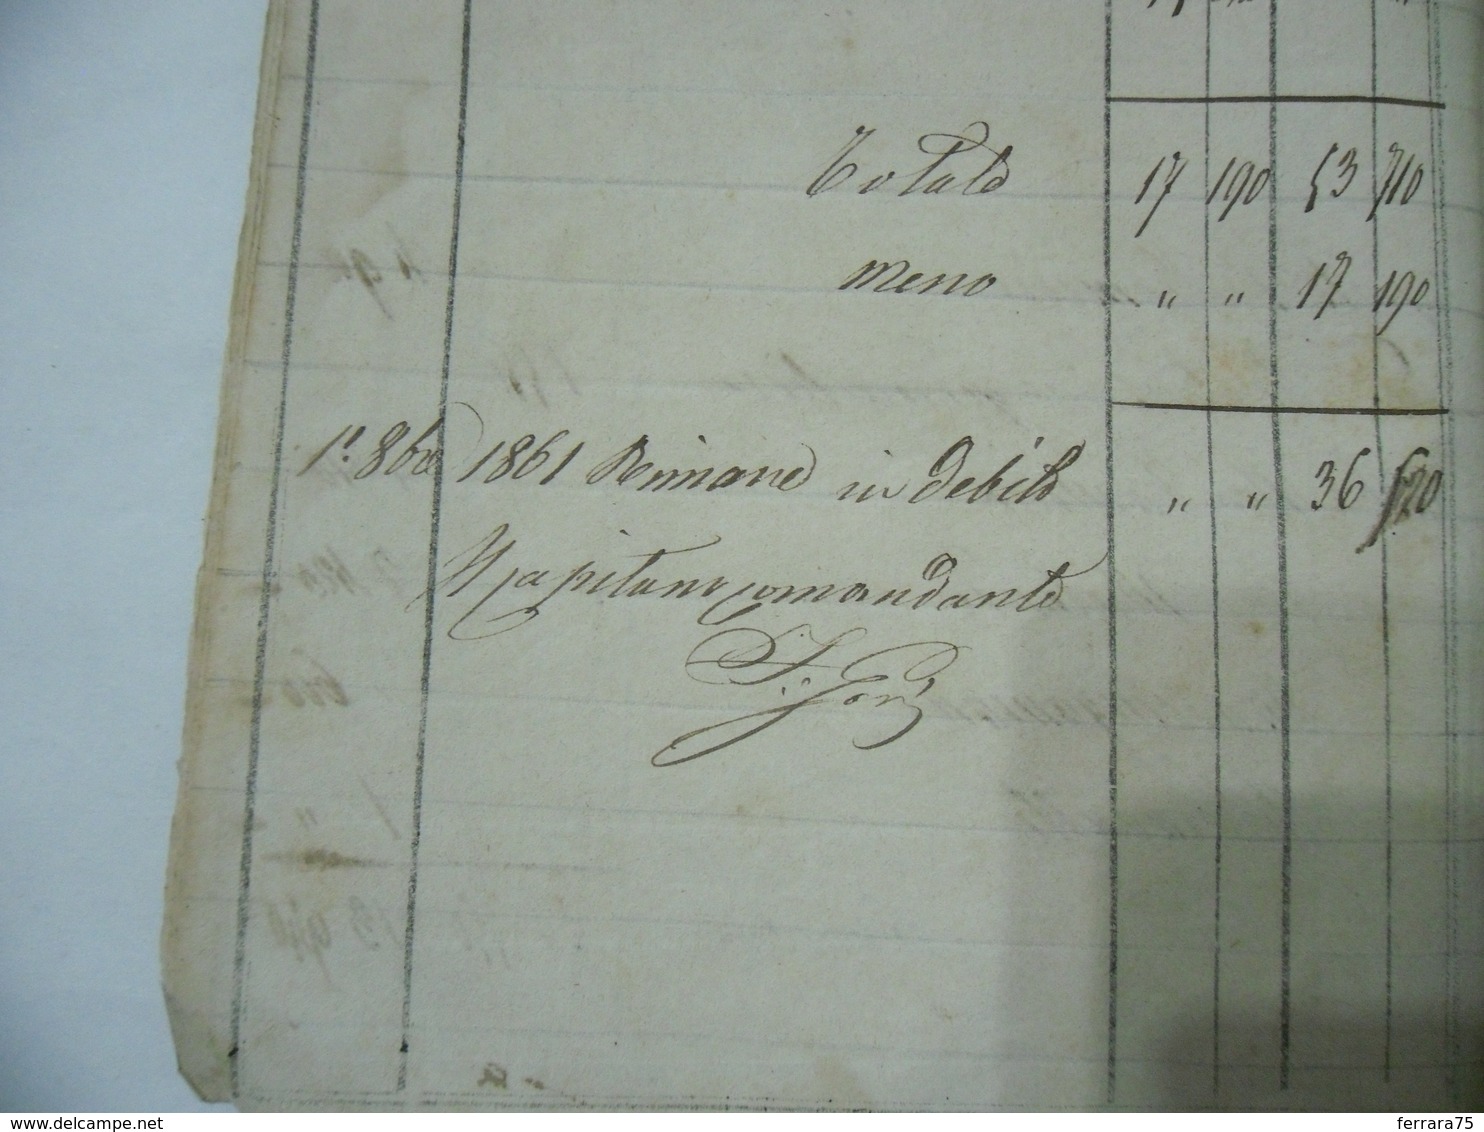 Totale 17 190 53 710
Meno " " 17 190
1º 8bre 1861 Rimane in debito " " 36 520
Il Capitano Comandante
F. Gori
delcampe.net
ferrara75